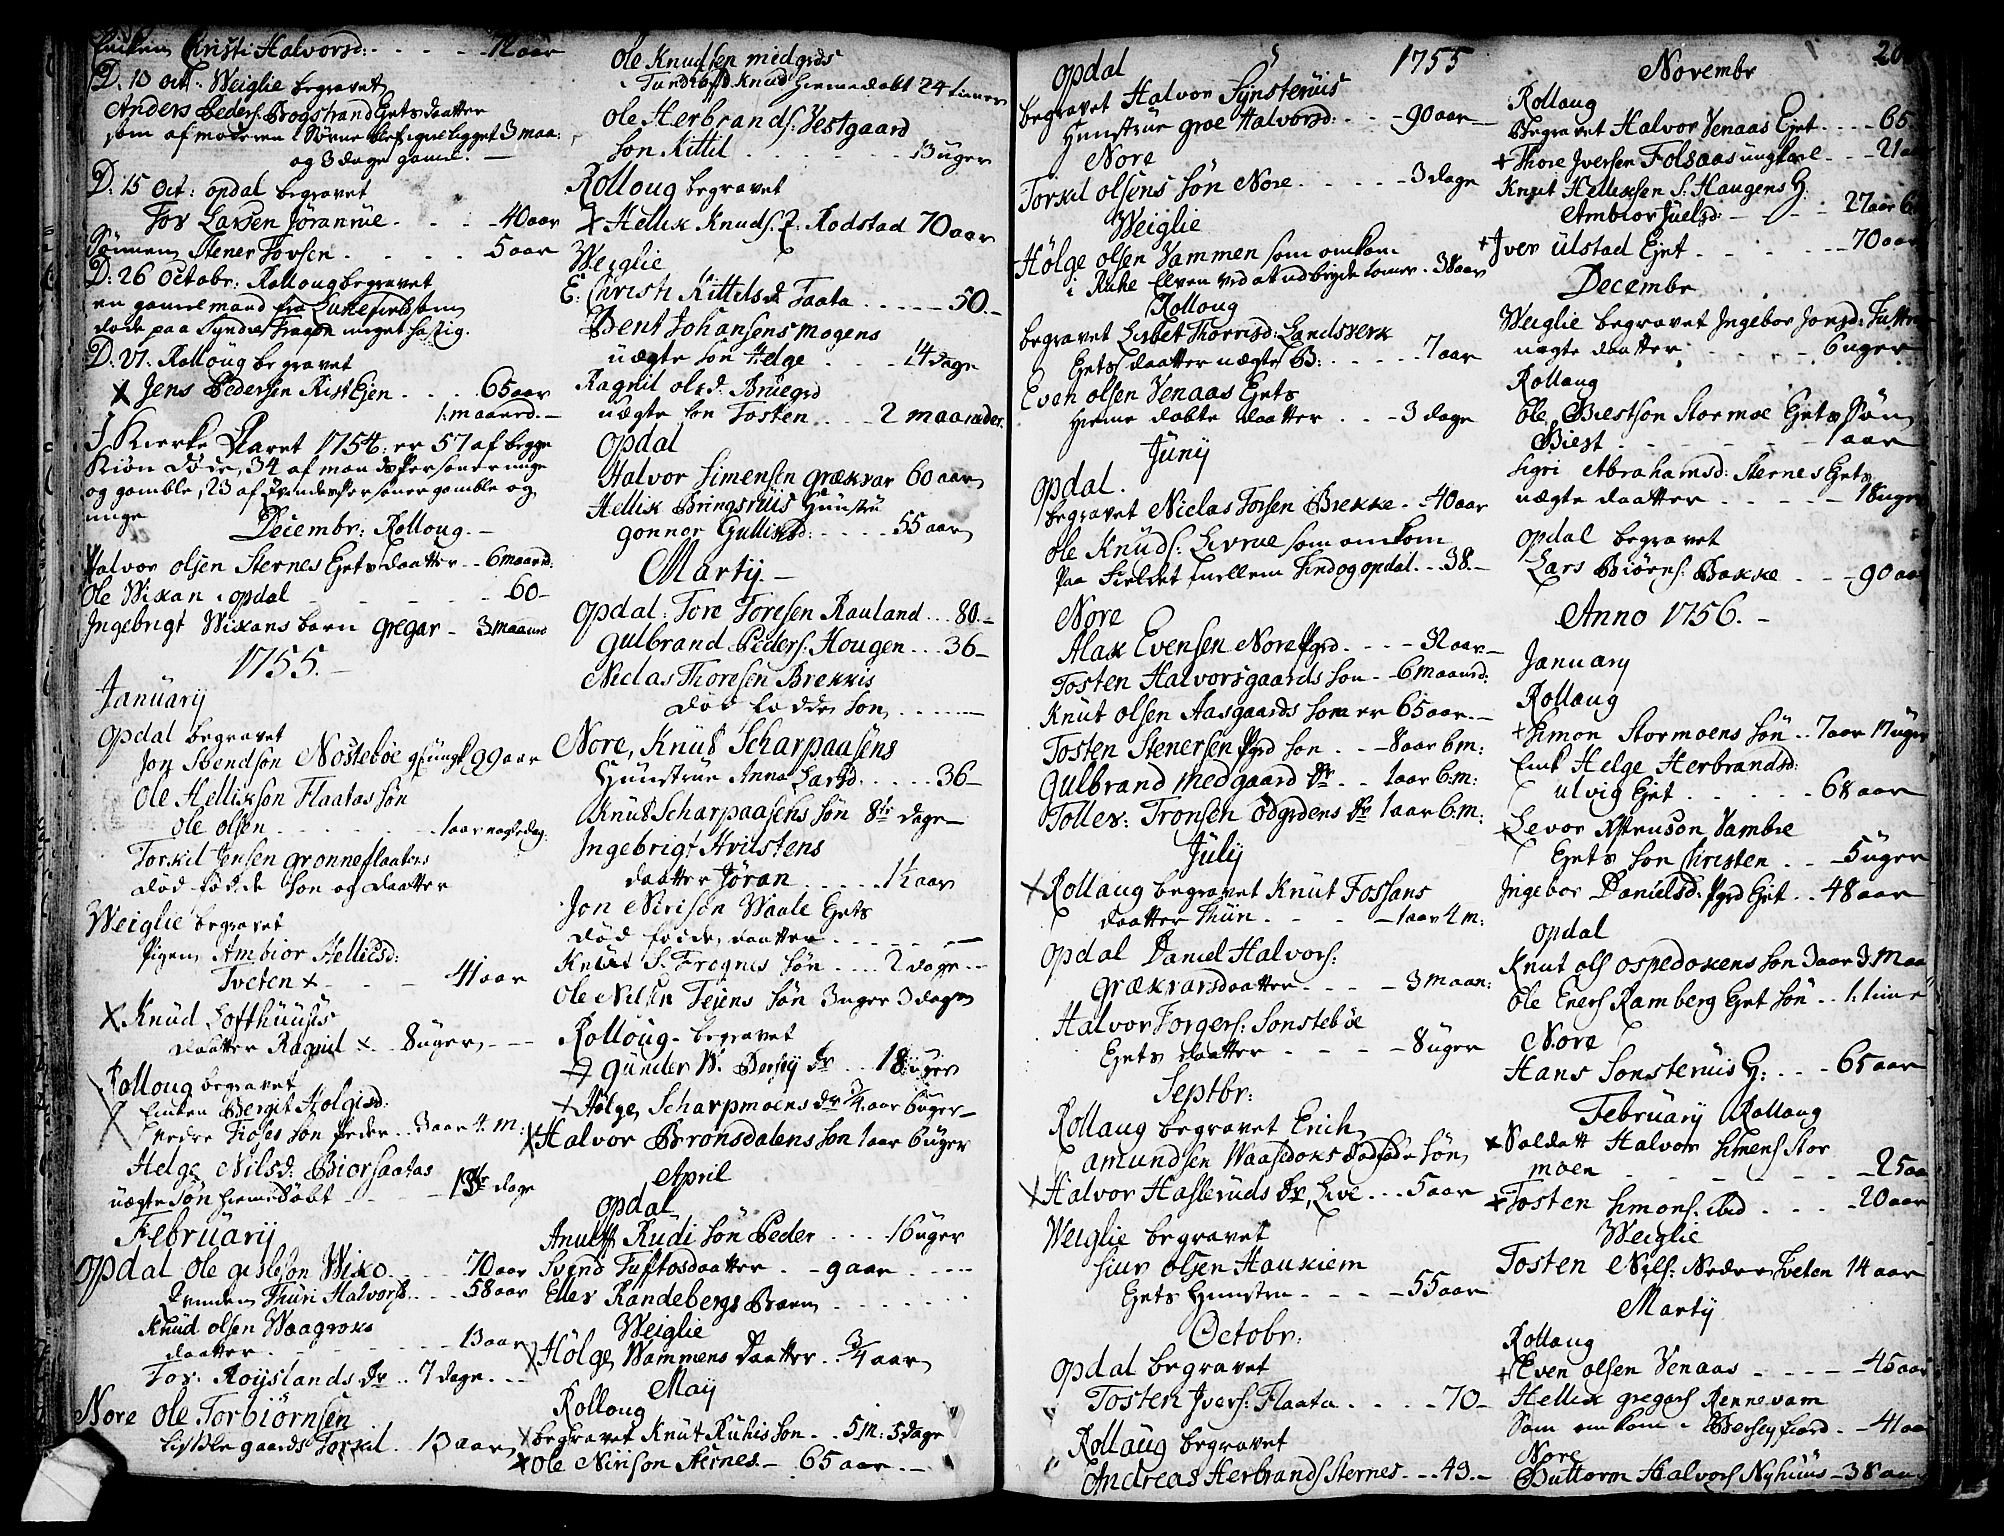 Enken Christi Halvorsd: - - - - 72 aar
D: 10 oct: Weiglie begravet
Anders Peders: Bogstrand Eiets daatter
som af moderen i Sövne ligget 3 maa:
og 3 dage gamel. -
D: 15 Oct: opdal begravet
Tor Larsen Jöranrue - - - 40 aar
Sönnen Stener Torsen - - - 5 aar
D: 26 Octobr: Rolloug begravet
en gamel mand fra
döde paa Syndre Fragon meget hastig.
D: 27. Rolloug begravet
x Jens Pedersen Rist Ejen - - - 65 aar
1: maaned. -
I Kierke Aaret 1754: er 57 af begge
Kiön döde, 34 af mands Personer unge
og gamble, 23 af qvinde Personer gamble og
unge
Decembr: Rolloug. -
Halvor olsen Sternes Eiets daatter - - 6 maaned:
Ole Wixan i opdal - - - - 60 -
Ingebrigt Wixans barn gregar - 3 maaned
1755. -
Januarij
Opdal begravet
Jon Svendsön Nöstebøe 99 aar
Ole Hellikson Flaatas sön
ole olsen - - - - 1 aar dag:
Torkil Jensen Grønneflaatens
död födde Sön og daatter
Weiglie begravet
Pigen Ambior Hellicsd:
Tveten x - - - 41 aar
x Knud Lofthuuses
daatter Ragnil x - 8 uger - -
Rolloug begravet
Enken Bergit Holgisd:
Nedre Fioses sön Peder - - 3 aar 4. m:
Helge Nilsd: Biorsaatas
uægte sön hiemedöbt - - - dage
Februarij
Opdal ole gisleson Wixo - - - 70 aar
Qvinden Thuri Halvors: - - 58 aar
Knud olsen Waagross
daatter - - - - 13 aar
Tor: Röyslands dr - - 7 dage - -
Nore ole Torbiörnsen
Torkil - - 13 aar
Ole Knudsen midgrds
Knud hiemedöbt 24 timer
Ole Herbrands: Vestgaard
sön Kittil - - - - 13 uger
Rolloug begravet
x Hellik Knuds: Rodstad 70 aar
Weiglie
E: Christi Kittelsd Taata - - - - 50. -
Bent Johansens mogens
uægte sön Helge - - - 14 dage
Ragnil olsd: Bruegrd
uægte sön Tosten - - - 2 maaneder.
Opdal
Halvor Simensen grækvar 60 aar
Hellik Bringsruis Hunstru
gonnor Gulliksd: - - - - 55 aar
Martij. -
Opdal: Tore Toresen Rauland - - - 80. -
Gulbrand Peders: Hougen - - - 36 -
Niclas Thoresen Brekkis
död födde sön - - - -
Nore, Knut Scharpaasens
Hunstrue Anna Larsd: - - - - 36 -
Knut Scharpaasens sön 8te dage -
Ingebrigt Hvilstens
daatter Jöran - - - 1½ aar
Jon Nirison Waale Eiets
död födde daatter - - - -
Knut S. Fregnes sön - - - 2 dage - -
Ole Nilsen Teiens sön 3 uger 3 dage
Rolloug - begravet
x Gunder N. Bersöj dr - - 18 uger
x Holge Scharpmoens dr ¾ aar 6 uger -
x Halvor Bronsdalens sön 1 aar 6 uger
April
Opdal
Anulf Rudi sön Peder - - - 16 uger
Svend Tuftos daatter - - 9 aar - - -
Eller Randebergs Baren - - - - -
Weiglie
x Holge Wammens daatter - - ¾ aar
May
Rolloug
x begravet Knut Ruhis sön - - 5 m: 5 dage
x Ole Nirison Sternes - 65 aar - -
Opdal 1755
begravet Halvor Synsteruis
Hunstrue groe Halvorsd: - - 90 aar -
Nore
Torkil olsens sön Nore - - - - - 3 dage
Weiglie
Holge olsen Vammen som omkom
i Ruke Elven ved at udbryde tomer - 38 aar
Rolloug
begravet Lisbet Thorrisd: Landsverk
Eiets daatter uægte B: - - - - 7 aar
Even olsen Venaas Eiets
hieme döbte daatter - - - 3 dage
Junij
Opdal.
begravet Niclas Torsen Brekke - 40 aar
Ole Knuds: Livrue som omkom
paa Fieldet imellem Tind og opdal - - 38. -
Nore
Alax Evensen Nore Pgrd - - - - 32 aar -
Tosten Halvorsgaards sön - - 6 maaned:
Knut olsen Aasgaards som er 65 aar. -
Tosten Stenersen Pgrd sön - - - 8 aar 6 m:
Gulbrand medgaard dr - - 1 aar 6: m:
Tolles: Tronsen ödgrdens dr 1 aar 6: m:
Julij
x Rollaug begravet Knut Fossans
daatter Thuri - - - - 1 aar 4 m:
Opdal Daniel Halvors:
grækvars daatter - - - - 3 maan:
Halvor Torgers: Sonsteböe
Eiets daatter - - - - 8 uger
Septbr:
Rollaug begravet Erich
Amundsen Waasdoks sön
x Halvor Hasleruds dr, Live - - - 5 aar
Weiglie begravet
Siur olsen Haukiem
Eiets Hunstru - - - - 55 aar
Octobr:
Opdal begravet
Tosten Ivers: Flaata - - - - 70 -
Rollaug begravet
Andreas Herbrands Sternes - - 49. -
Novembr
Rollaug
Begravet Halvor Venaas Eiet - - - - 66.
+ Thore Iversen Folsaas ungkarl - - - 21 aar
Knut Helliksen S: Haugens H:
Ambior Juelsd: - - - - 27 aar
+ Iver Ulstad Eiet - - - - - 70 aar
Decembr
Weiglie begravet Ingebor Jonsd:
uægte daatter - - - - 6 uger
Rollaug
Ole Biestson Stormoe Eiets Sön
Biest - - - - - 1 aar
Sigri Abrahamsd: Sternes Eiets
uægte daatter - - - - 18 uger
Opdal begravet
Lars Biörns: Bakke - - - 90 aar
Anno 1756. -
January
Rollaug
+ Simon Stormoens sön - - 7 aar 17 uger
Enk Helge Herbrandsd:
ulvig Eiet - - - - - 68 aar
x Levor Vambre
Eiets sön Christen - - - 5 uger
Ingebor Danielsd: Pgrd Eiet - - 48 aar
Opdal
Knut ols: ospedokens sön 3 aar 3 maa
Ole Eners: Ramberg Eiet sön - - 1. time
Nore
Hans Sonsteruis H: - - - 65 aar
Februarij Rollaug
x Soldatt Halvor Simens: Stor
moen - - - - - 25 aar
x Tosten Simons: ibid - - - - 20 aar
Weiglie
Tosten Nils: Nedre Tveten 14 aar
Martij
Rollaug
+ Even olsen Venaas - - - - 45 aar
Hellik gregors: Rennevam
Som omkom i Bersöyfiord - - 41 aar
Nore
Guttorm Halvors Nyhuus - 38 aar